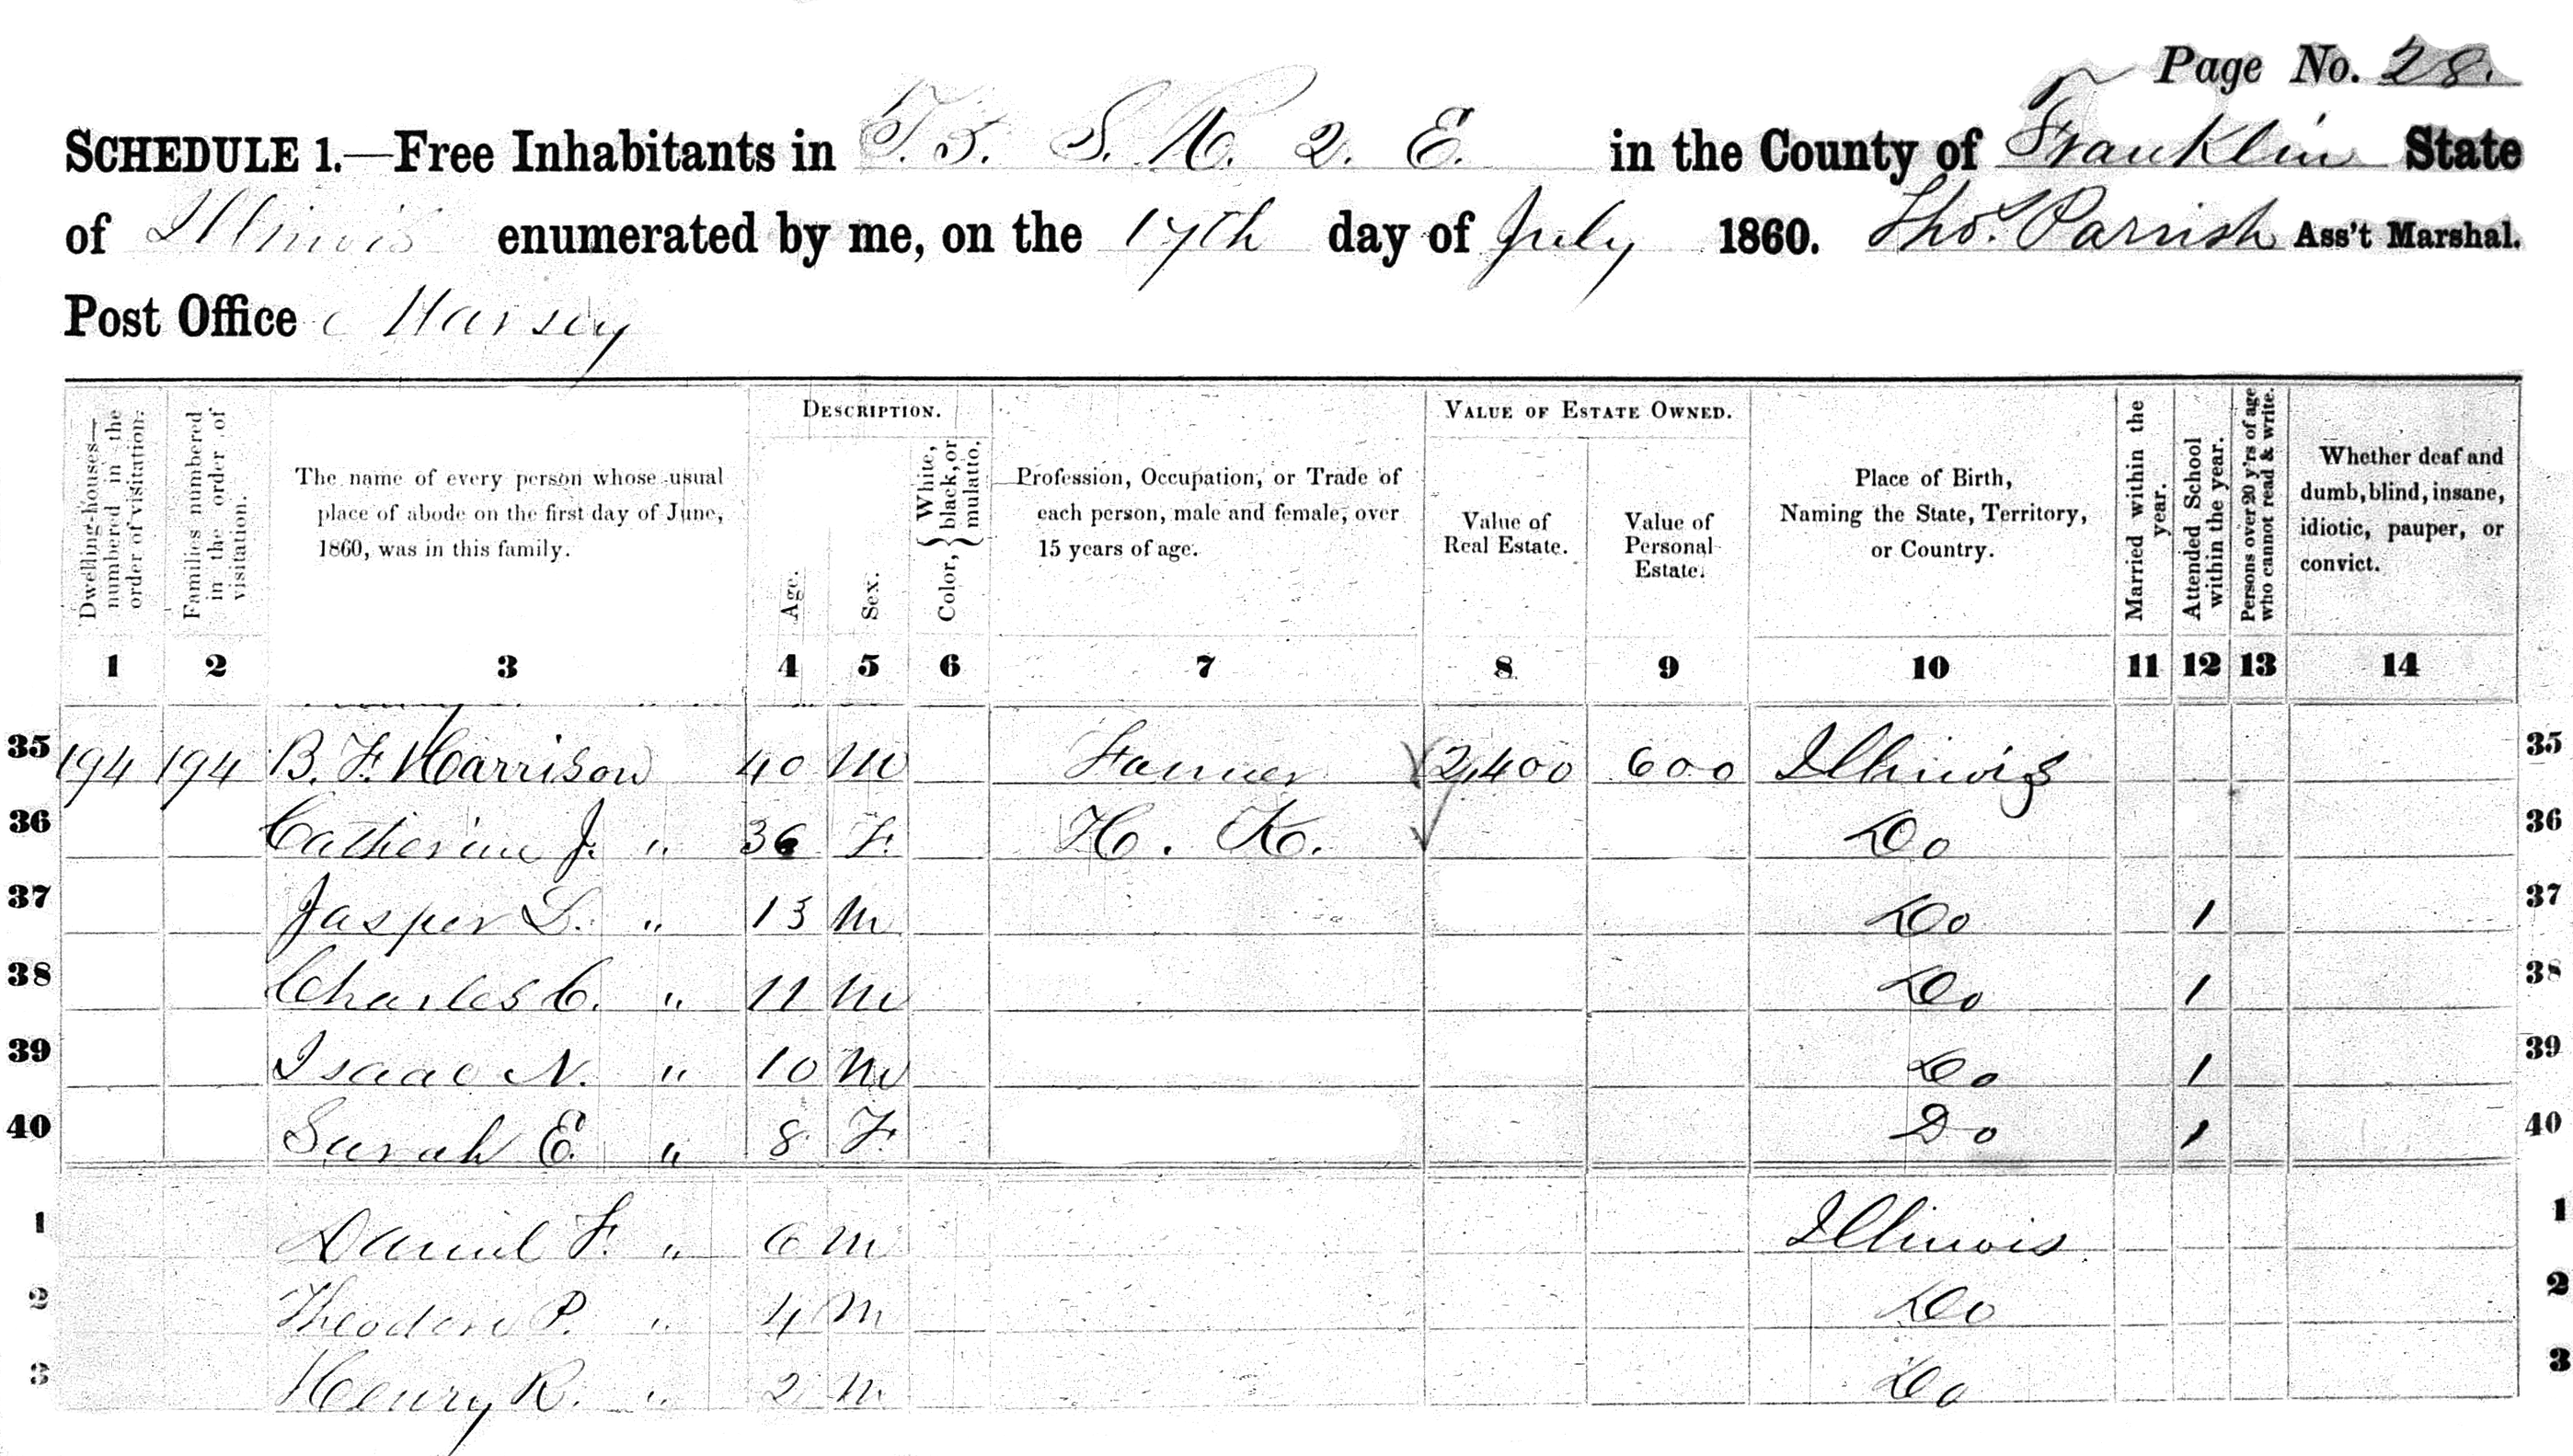 Page No. 28.
SCHEDULE 1.—Free Inhabitants in T. 5. S. R. 2. E. in the County of Franklin State
of Illinois enumerated by me, on the 17th day of July 1860. Thos. Parrish Ass't Marshal.
Post Office
Dwelling-houses—numbered in the order of visitation.
Families numbered in the order of visitation.
The name of every person whose usual place of abode on the first day of June, 1860, was in this family.
DESCRIPTION.
Age.
Sex.
Color, { White, black, or mulatto.
Profession, Occupation, or Trade of each person, male and female, over 15 years of age.
VALUE OF ESTATE OWNED.
Value of Real Estate.
Value of Personal Estate.
Place of Birth, Naming the State, Territory, or Country.
Married within the year.
Attended School within the year.
Persons over 20 y'rs of age who cannot read & write.
Whether deaf and dumb, blind, insane, idiotic, pauper, or convict.
1 2 3 4 5 6 7 8 9 10 11 12 13 14
35 194 194 B. F. Harrison 40 M Farmer 2,400 600 Illinois 35
36 Catherine J. " 36 F. H. K. Do 36
37 Jasper L. " 13 M Do 1 37
38 Charles C. " 11 M Do 1 38
39 Isaac N. " 10 M Do 1 39
40 Sarah E. " 8 F. Do 1 40
1 Daniel F. " 6 M Illinois 1
2 Theodore P. " 4 M Do 2
3 Henry R. " 2 M Do 3